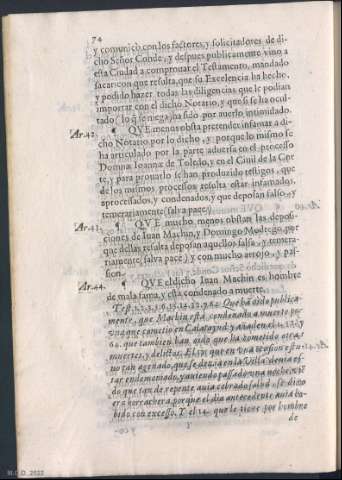 74
y comunicò con los factores, y solicitadores de di-
cho Señor Conde, y despues publicamente vino a
esta Ciudad a comprouar el Testamento, mandado
sacar: con que resulta, que su Excelencia ha hecho,
y podido hazer todas las diligencias que le podian
importar con el dicho Notario, y que si se ha ocul-
tado (lo q̃ se niega) ha sido por auerlo intimidado.
Ar.42. ¶ QVE menos obsta pretender infamar a di-
cho Notario por lo dicho, y porque lo mismo se
ha articulado por la parte aduersa en el processo
Domnæ Ioannæ de Toledo, y en el Ciuil de la Cor
te, y para prouarlo se han produzido testigos, que
de los mismos processos resulta estar infamados,
aprocessados, y condenados, y que deposan falso, y
temerariamente (salua pace)
Ar.43. ¶ QVE mucho menos obstan las deposi-
ciones de Iuan Machin, y Domingo Modrego, por
que dellas resulta deposan aquellos falsa, y temera-
riamente (salua pace) y con mucho arrojo, y pas-
sion.
Ar.44. ¶ QVE el dicho Iuan Machin es hombre
de mala fama, y està condenado a muerte.
Que ha oido publica-
mente, que Machin està condenado a muerte por
que cometio en Calatayud: y añaden el
que tambien han oido que ha cometido otras
muertes, y delitos. El
tan agenado, que se dezia en la Villa deuia es-
tar endemoniado, y auiendo passado vna noche,
do que tan de repente auia cobrado salud, se dixo
era borrachera, porque el dia antecedente auia be-
bido con excesso. Y el 14. que le tiene por hombre
de